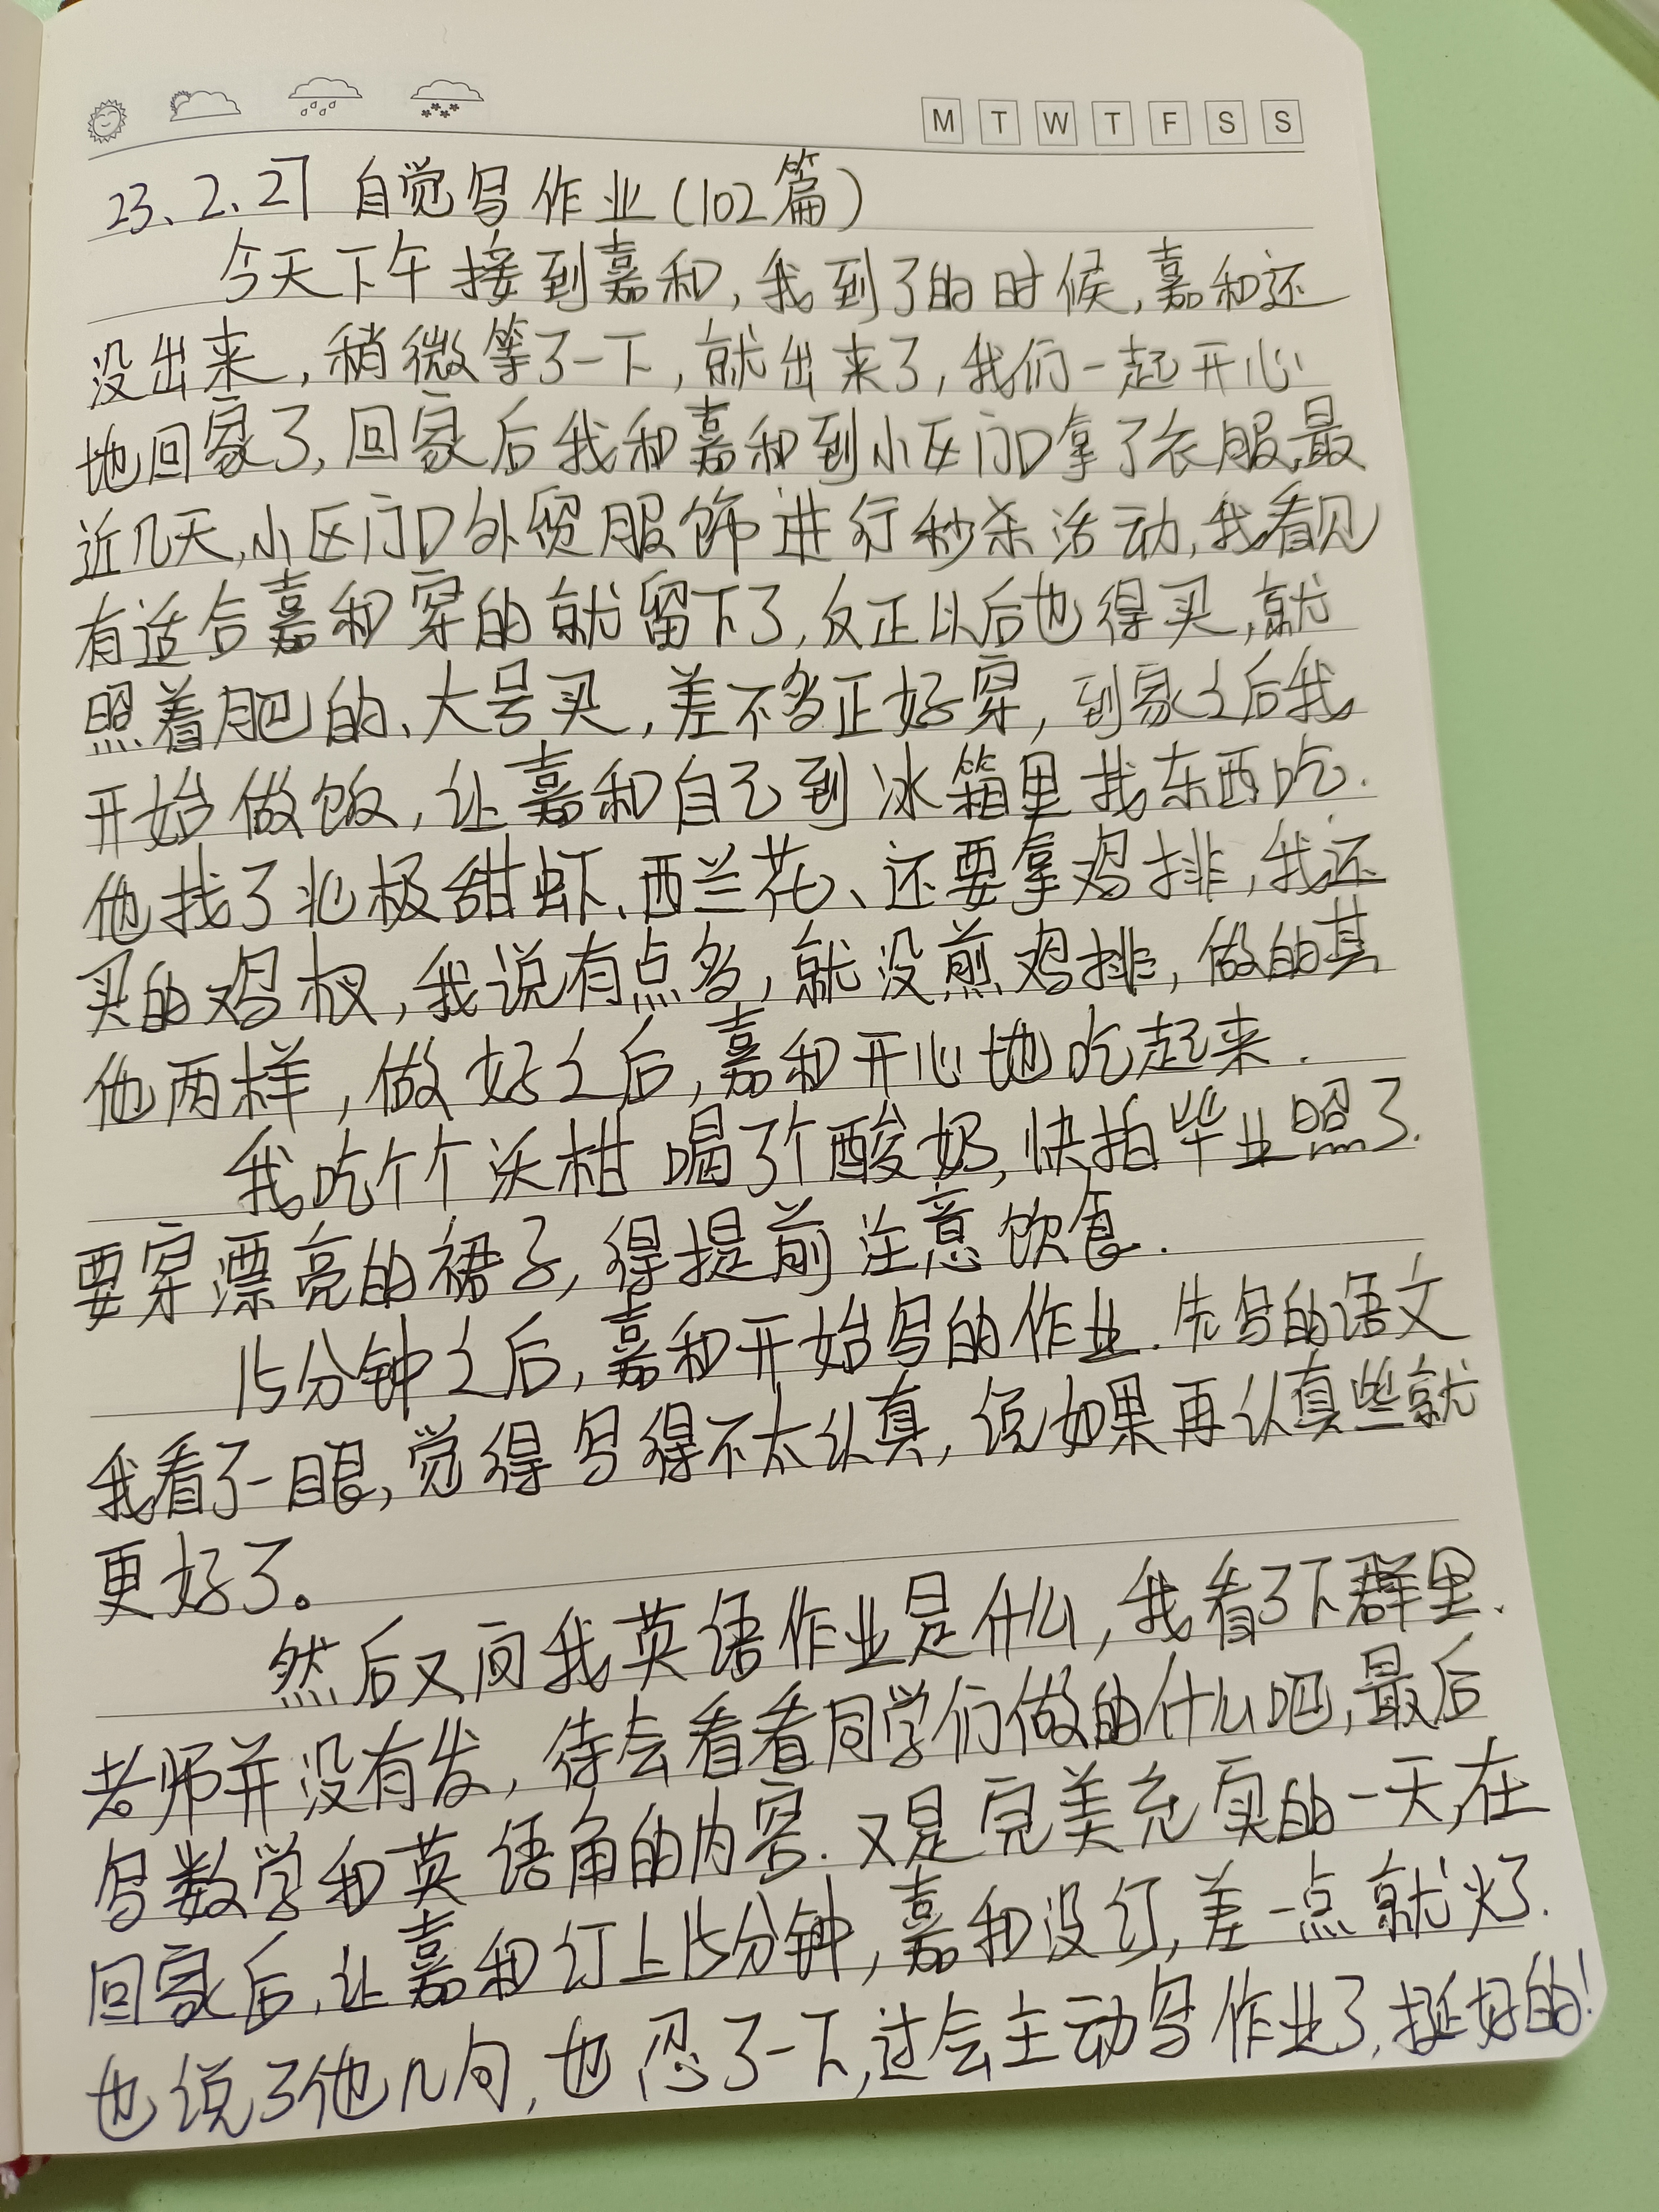 M T W T F S S
23、2、27 自觉写作业(102篇)
今天下午接到嘉和,我到了的时候,嘉和还
没出来,稍微等了一下,就出来了,我们一起开心
地回家了,回家后我和嘉和到小区门口拿了衣服,最
近几天,小区门口外贸服饰进行秒杀活动,我看见
有适合嘉和穿的就留下了,反正以后也得买,就
照着肥的、大号买,差不多正好穿,到家之后我
开始做饭,让嘉和自己到冰箱里找东西吃.
他找了北极甜虾、西兰花、还要拿鸡排,我还
买的鸡杈,我说有点多,就没煎鸡排,做的其
他两样,做好之后,嘉和开心地吃起来.
我吃个个沃柑喝了个酸奶,快拍毕业照了.
要穿漂亮的裙子,得提前注意饮食.
15分钟之后,嘉和开始写的作业.先写的语文
我看了一眼,觉得写得不太认真,说如果再认真些就
更好了。
然后又问我英语作业是什么,我看了下群里、
老师并没有发,待会看看同学们做的什么吧,最后
写数学和英语角的内容.又是完美充实的一天,在
回家后,让嘉和订上15分钟,嘉和没订,差一点就火了.
也说了他几句,也忍了一下,过会主动写作业了,挺好的!